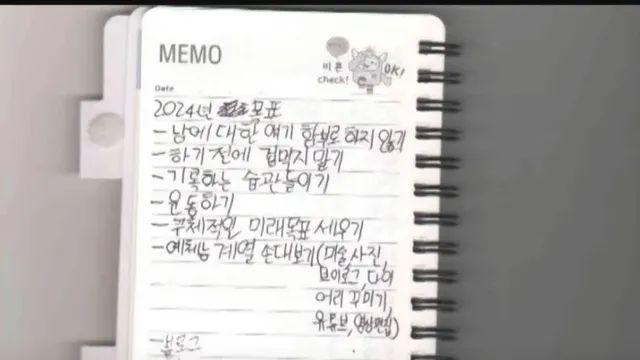 MEMO
비콘
check!
OK!
Date
2024년 목표
-남에 대한 얘기 함부로 하지 않기
-하기 전에 겁먹지 말기
-기록하는 습관들이기
-운동하기
-구체적인 미래목표 세우기
-예체능 계열 손대보기(미술,사진,
브이로그,다이
어리 꾸미기,
유튜브,영상편집)
-블로그